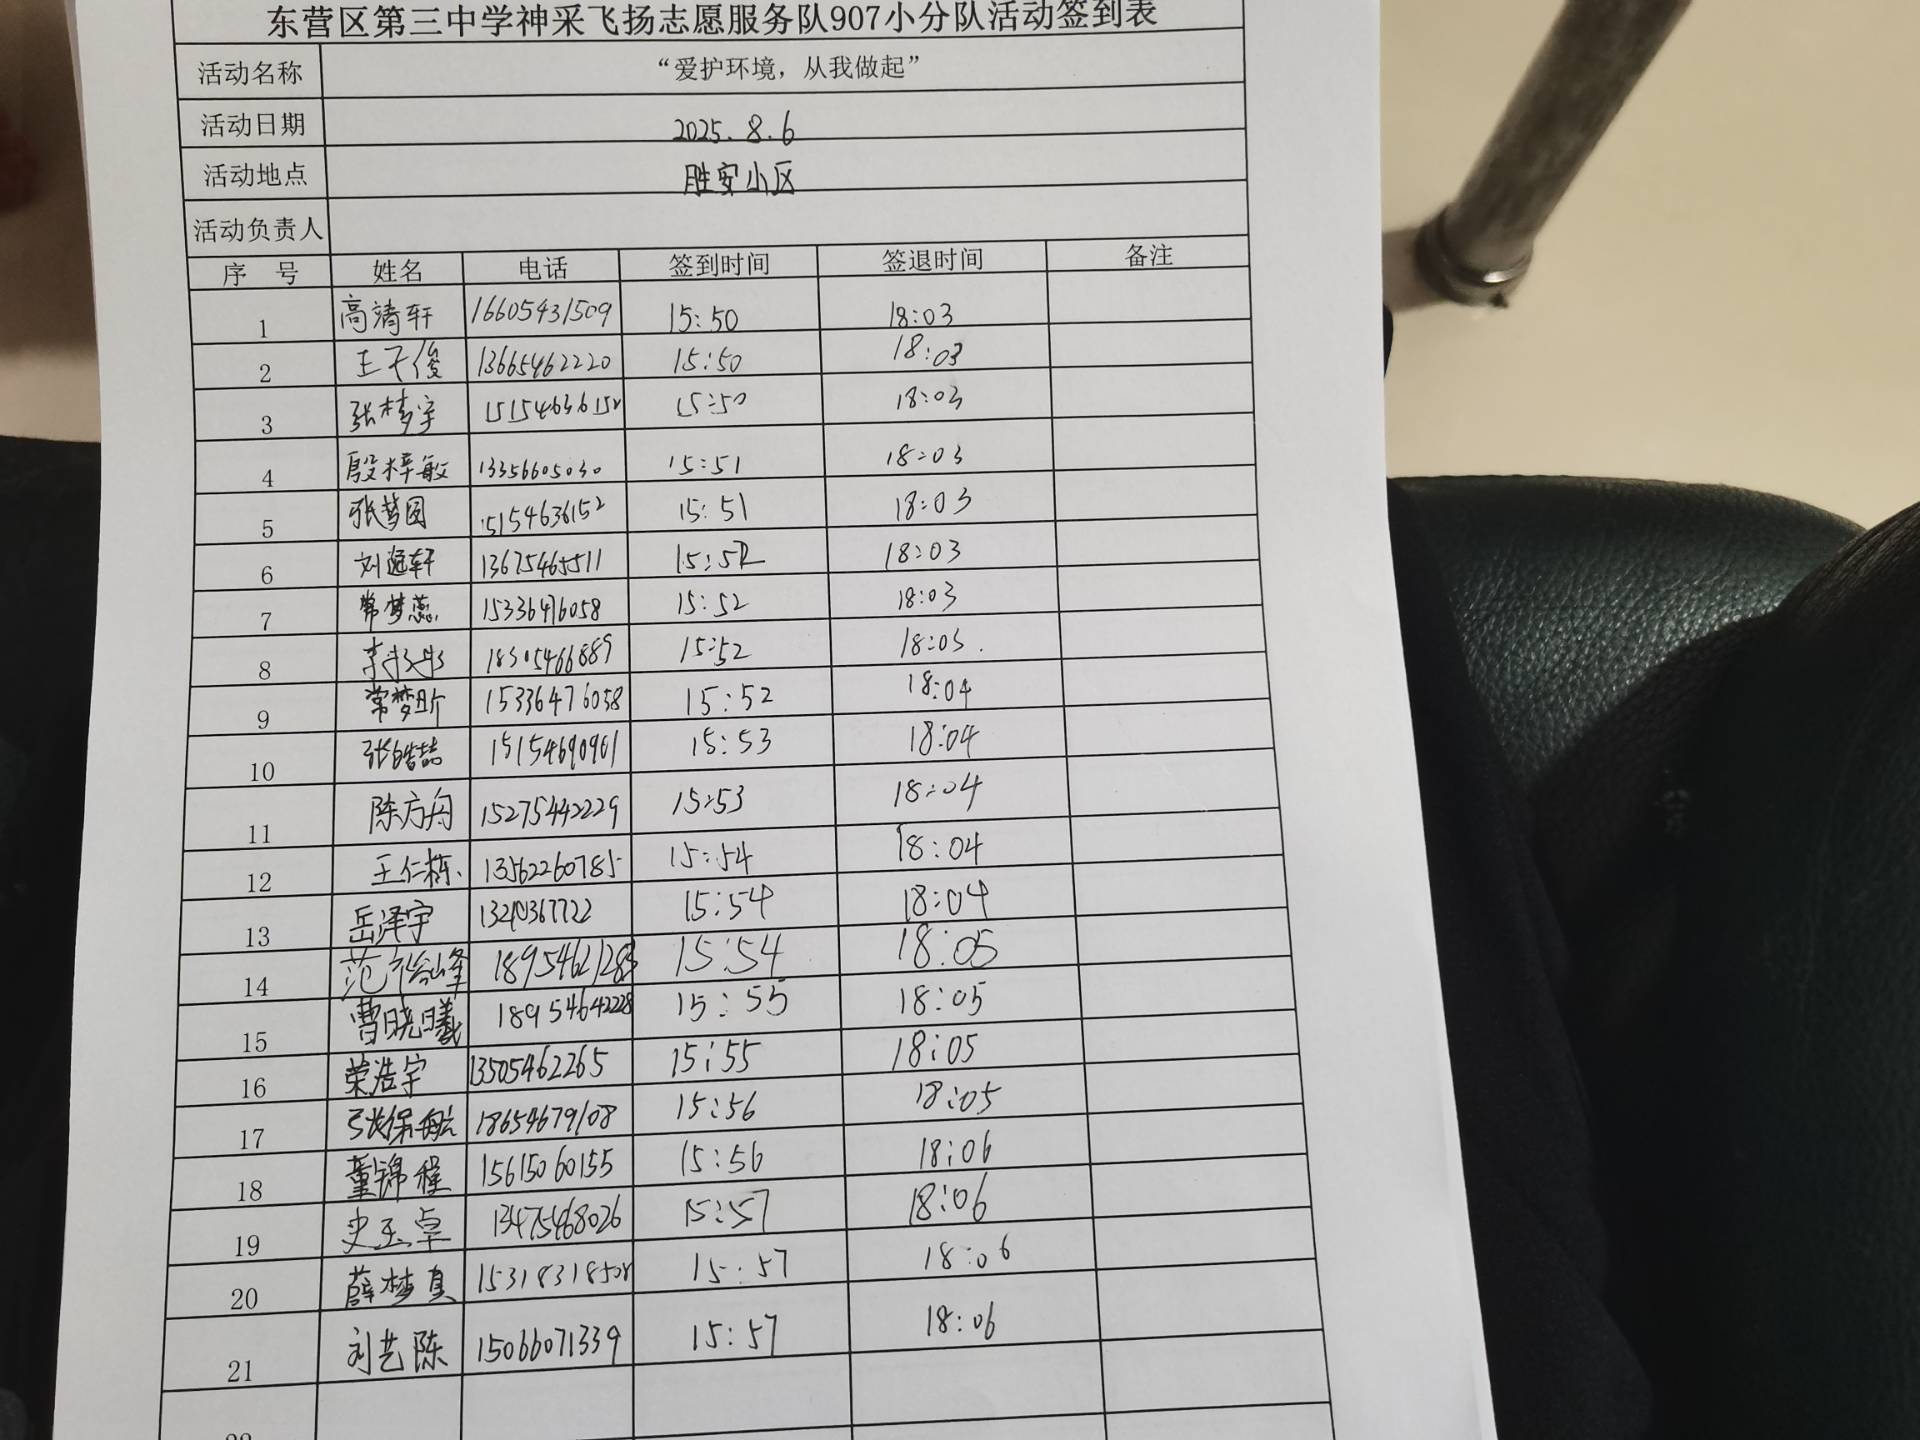 东营区第三中学神采飞扬志愿服务队907小分队活动签到表
活动名称 “爱护环境，从我做起”
活动日期 2025.8.6
活动地点 胜安小区
活动负责人
序 号 姓名 电话 签到时间 签退时间 备注
1 高靖轩 16605431509 15:50 18:03
2 王子俊 13665462220 15:50 18:03
3 张梦宇 15154636152 15:50 18:03
4 殷梓敏 13356605030 15:51 18:03
5 张梦园 15154636152 15:51 18:03
6 刘逸轩 13675465511 15:52 18:03
7 常梦蕊 15336476058 15:52 18:03
8 18305466889 15:52 18:03.
9 常梦昕 15336476058 15:52 18:04
10 张皓喆 15154690901 15:53 18:04
11 陈方舟 15275442229 15:53 18:04
12 王仁栋 13562260785 15:54 18:04
13 岳泽宇 15:54 18:04
14 范裕峰 15:54 18:05
15 曹晓曦 18954642228 15:55 18:05
16 荣浩宇 13505462265 15:55 18:05
17 张保航 18654679108 15:56 18:05
18 董锦程 15615060155 15:56 18:06
19 史玉卓 13475468026 15:57 18:06
20 薛梦真 15318318508 15:57 18:06
21 刘艺陈 15066071339 15:57 18:06